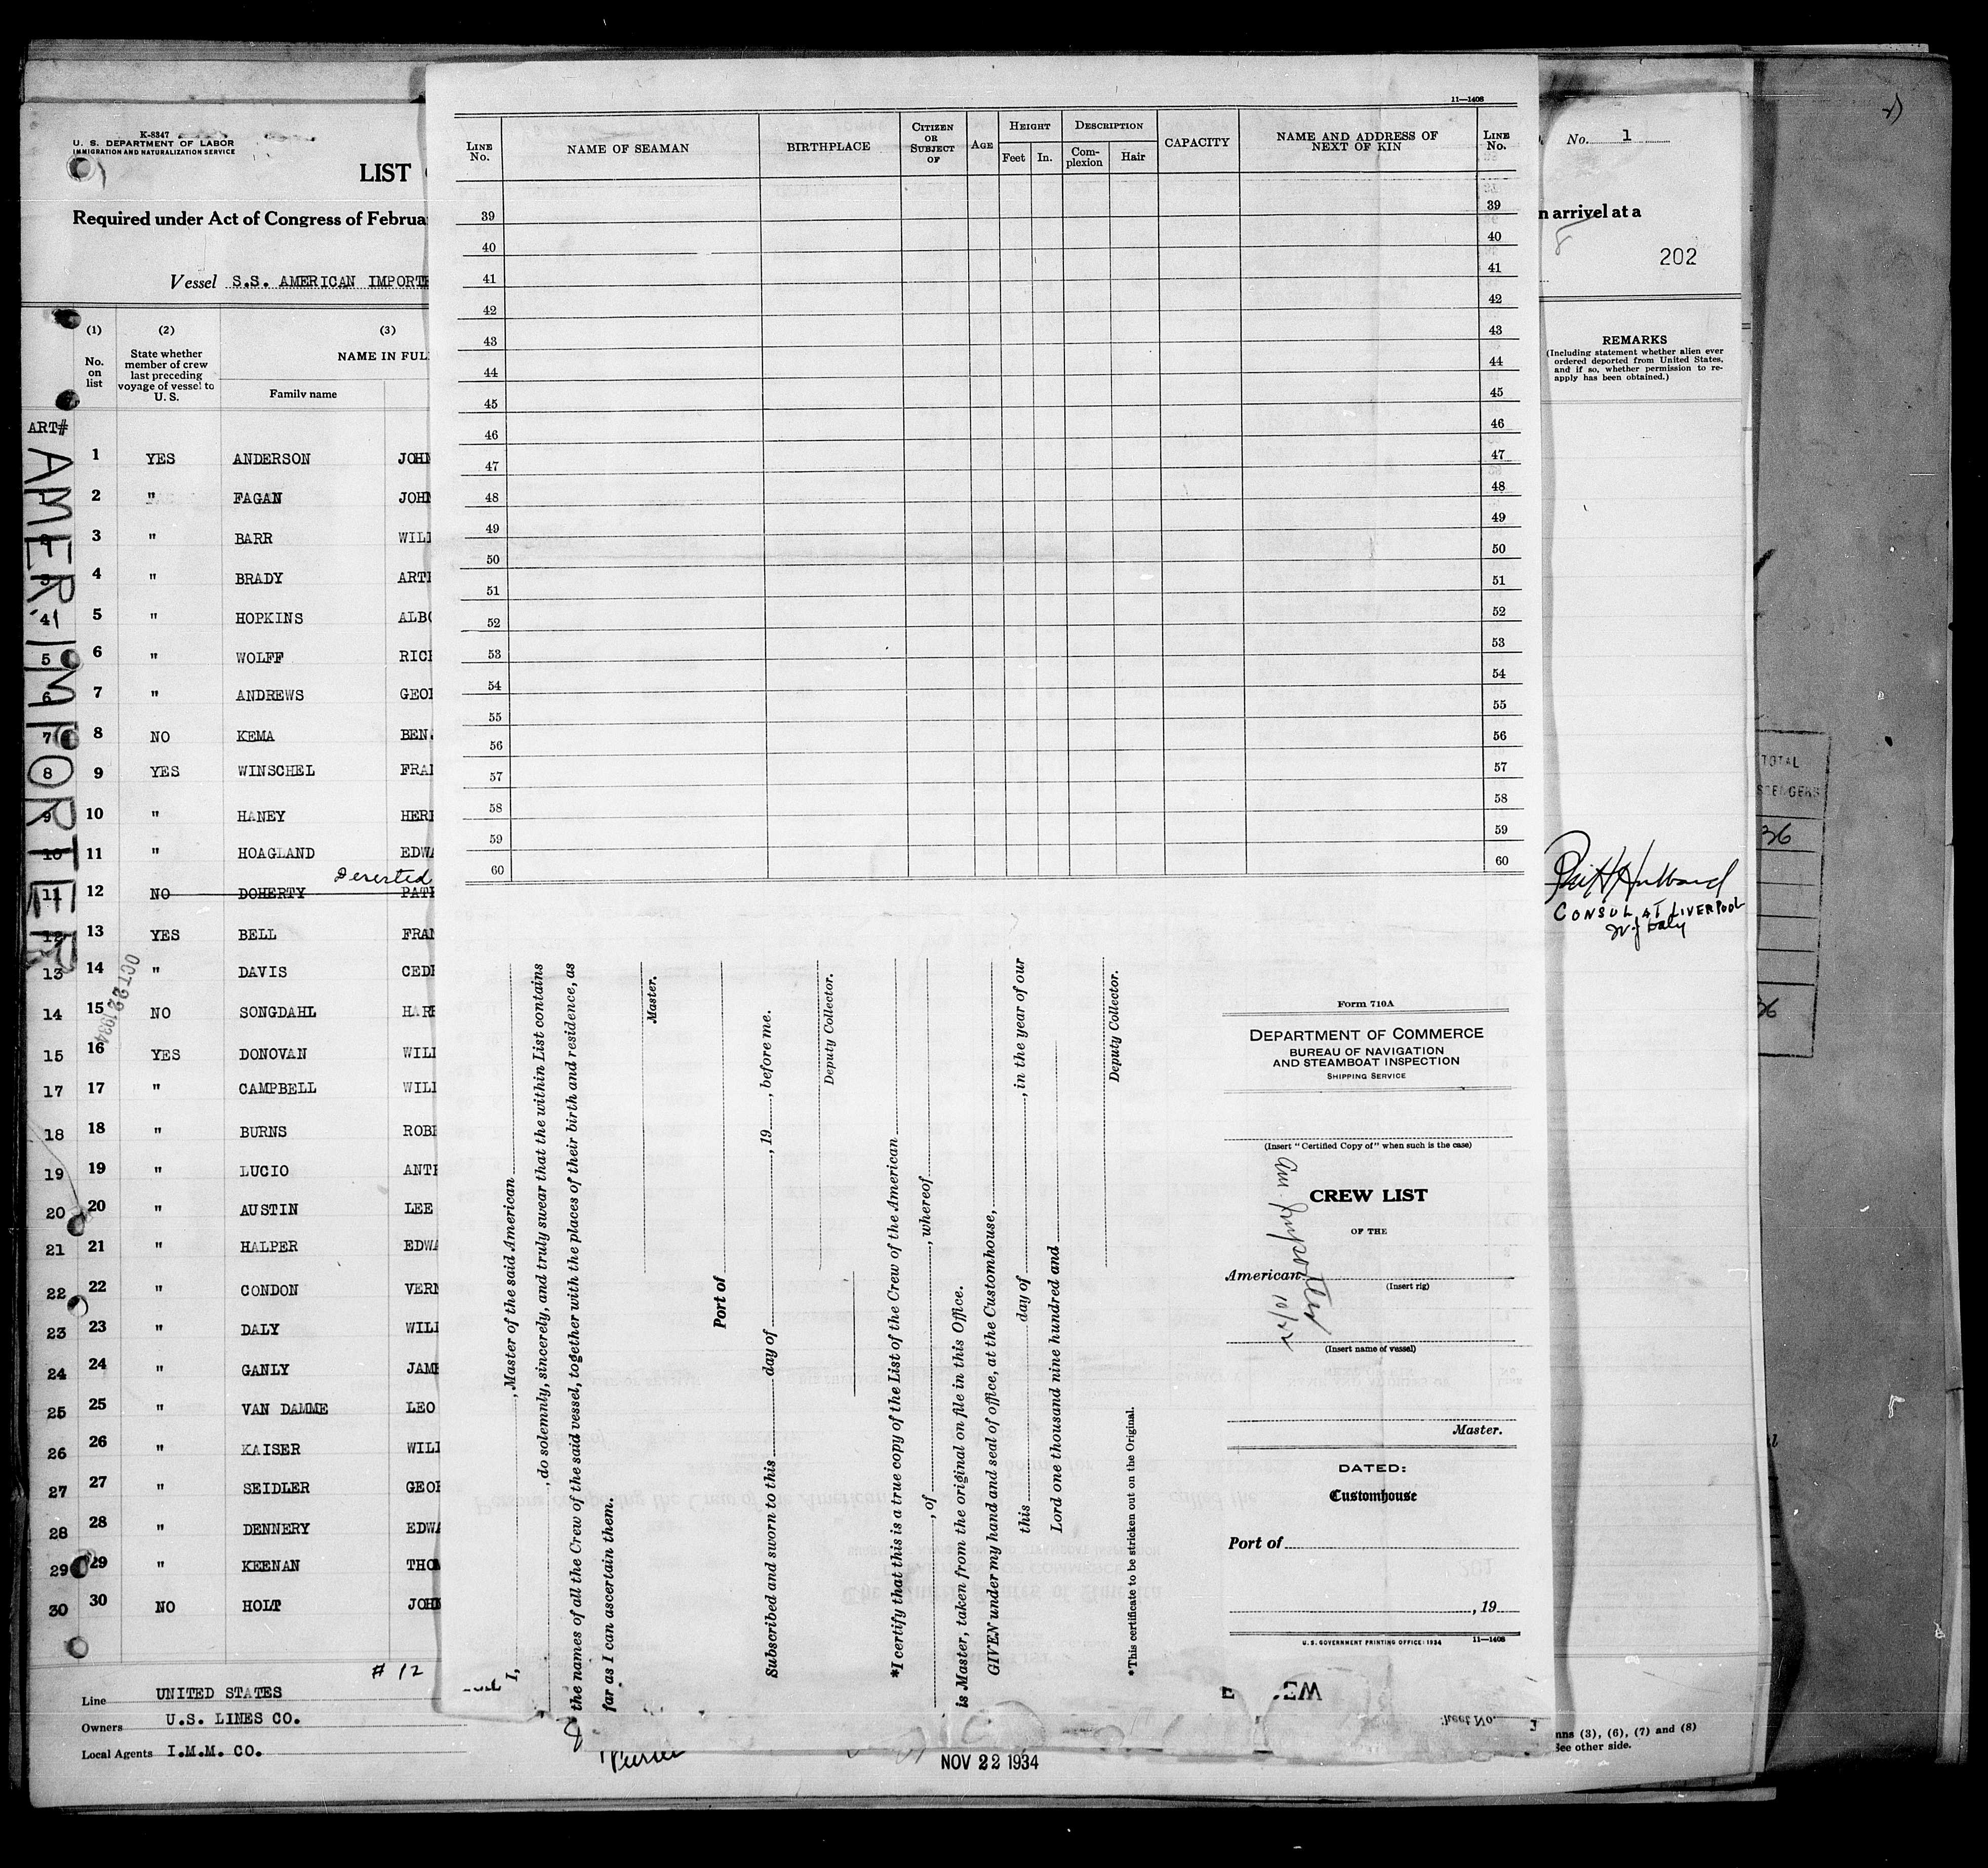 K-8347
U. S. DEPARTMENT OF LABOR
IMMIGRATION AND NATURALIZATION SERVICE
LIST
Required under Act of Congress of Februa
Vessel S.S. AMERICAN IMPORTE
(1) (2) (3)
No. on list
State whether member of crew last preceding voyage of vessel to U. S.
NAME IN FUL
Family name
ART#
AMER. IMPORTER
1 YES ANDERSON JOHN
2 " FAGAN JOHN
3 " BARR WILL
4 " BRADY ARTH
5 " HOPKINS ALBO
6 " WOLFF RICH
7 " ANDREWS GEOR
8 NO KEMA BEN
9 YES WINSCHEL FRAN
10 " HANEY HER
11 " HOAGLAND EDWA
Deserted
12 NO DOHERTY PATR
13 YES BELL FRAN
14 " DAVIS CEDR
15 NO SONGDAHL HAR
16 YES DONOVAN WILL
17 " CAMPBELL WILL
18 " BURNS ROBE
19 " LUCIO ANTH
20 " AUSTIN LEE
21 " HALPER EDWA
22 " CONDON VERN
23 " DALY WILL
24 " GANLY JAME
25 " VAN DAMME LEO
26 " KAISER WILL
27 " SEIDLER GEOR
28 " DENNERY EDWA
29 " KEENAN THOM
30 NO HOLT JOHN
3
4
5
6
7
8
9
10
11
12
13
14
15
17
18
19
20
21
22
23
24
25
26
27
28
29
30
OCT 22 1934
# 12
Line UNITED STATES
Owners U.S. LINES CO.
Local Agents I.M.M. CO.
11—1408
LINE No.
NAME OF SEAMAN
BIRTHPLACE
CITIZEN OR SUBJECT OF
AGE
HEIGHT
Feet In.
DESCRIPTION
Complexion Hair
CAPACITY
NAME AND ADDRESS OF NEXT OF KIN
LINE No.
39 39
40 40
41 41
42 42
43 43
44 44
45 45
46 46
47 47
48 48
49 49
50 50
51 51
52 52
53 53
54 54
55 55
56 56
57 57
58 58
59 59
60 60
I,
, Master of the said American
, do solemnly, sincerely, and truly swear that the within List contains
the names of all the Crew of the said vessel, together with the places of their birth and residence, as
far as I can ascertain them.
Master.
Port of
Subscribed and sworn to this day of , 19 , before me.
Deputy Collector.
*I certify that this is a true copy of the List of the Crew of the American
, of , whereof
is Master, taken from the original on file in this Office.
GIVEN under my hand and seal of office, at the Customhouse,
this day of , in the year of our
Lord one thousand nine hundred and
Deputy Collector.
*This certificate to be stricken out on the Original.
Form 710A
DEPARTMENT OF COMMERCE
BUREAU OF NAVIGATION
AND STEAMBOAT INSPECTION
SHIPPING SERVICE
(Insert "Certified Copy of" when such is the case)
CREW LIST
OF THE
American
(Insert rig)
Am. Importer
10/22
(Insert name of vessel)
Master.
DATED:
Customhouse
Port of
, 19
U. S. GOVERNMENT PRINTING OFFICE: 1934 11—1408
NOV 22 1934
No. 1
n arrivel at a
202
REMARKS
(Including statement whether alien ever
ordered deported from United States,
and if so, whether permission to re-
apply has been obtained.)
CONSUL AT LIVERPOOL
W. J Daly
TOTAL
36
36
heet No. 1
nns (3), (6), (7) and (8)
See other side.